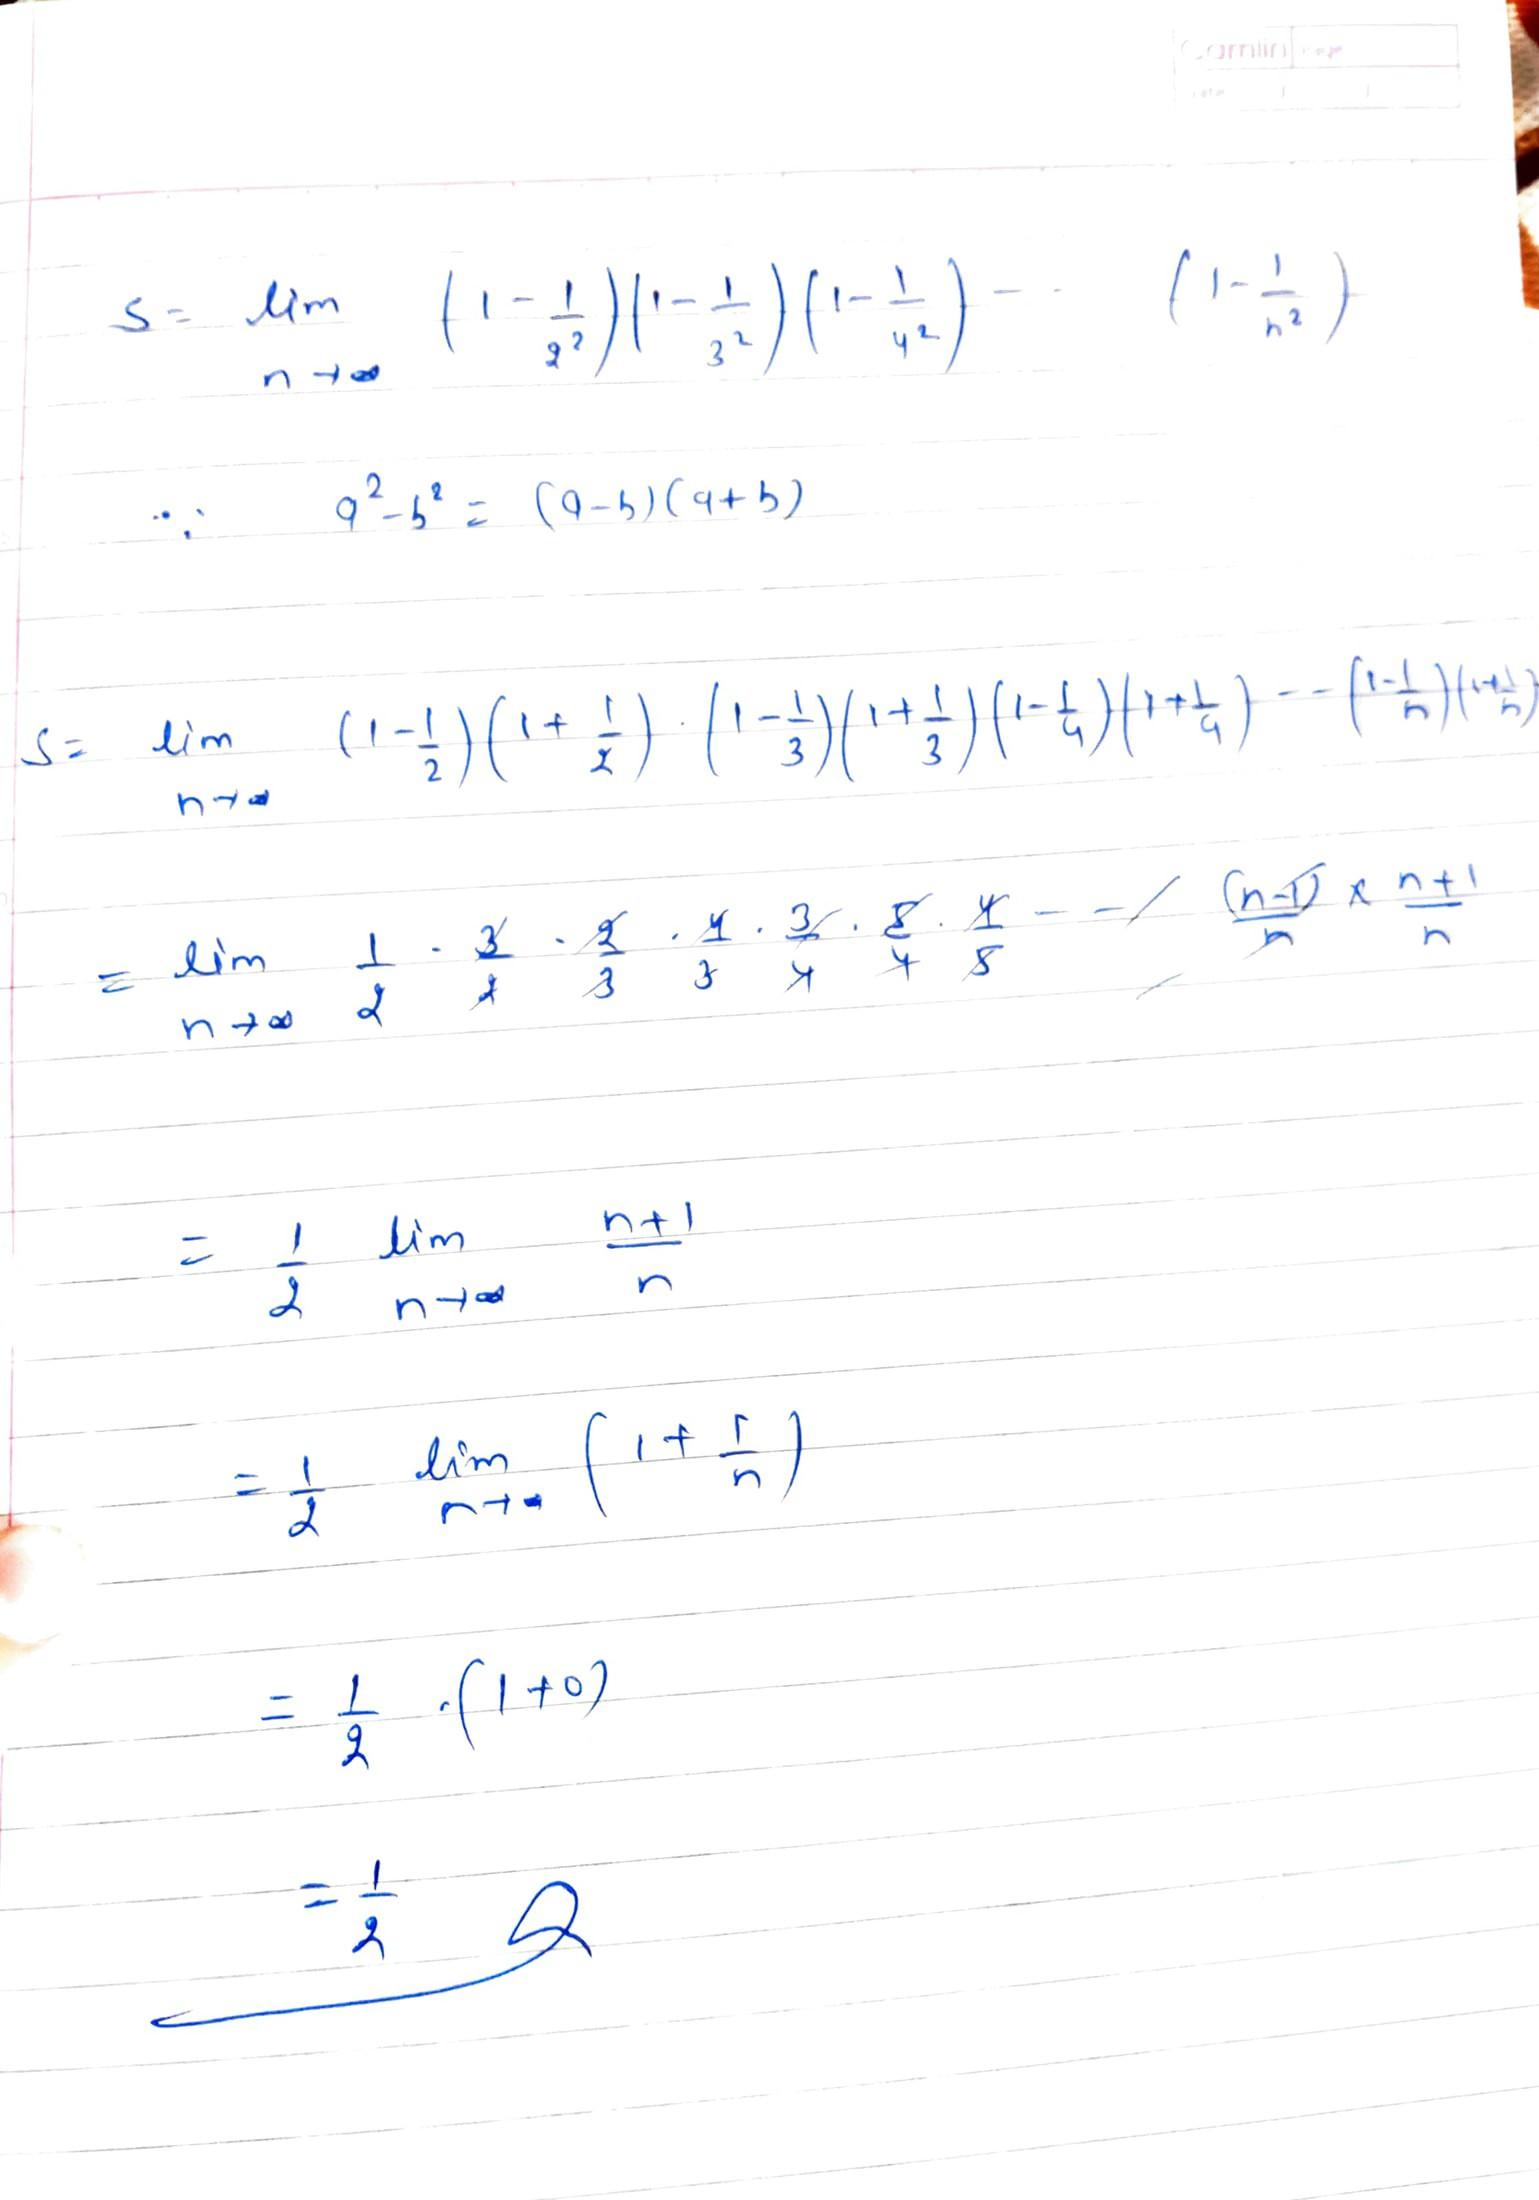 Camlin Page
Date / /
S= lim n→∞ (1-1/2²)(1-1/3²)(1-1/4²)-- (1-1/n²)
∵ a²-b² = (a-b)(a+b)
S= lim n→∞ (1-1/2)(1+1/2).(1-1/3)(1+1/3)(1-1/4)(1+1/4)--(1-1/n)(1+1/n)
= lim n→∞ 1/2 . 3/2 . 2/3 . 4/3 . 3/4 . 5/4 . 4/5 --- (n-1)/n × n+1/n
= 1/2 lim n→∞ n+1/n
= 1/2 lim n→∞ (1+1/n)
= 1/2 .(1+0)
= 1/2